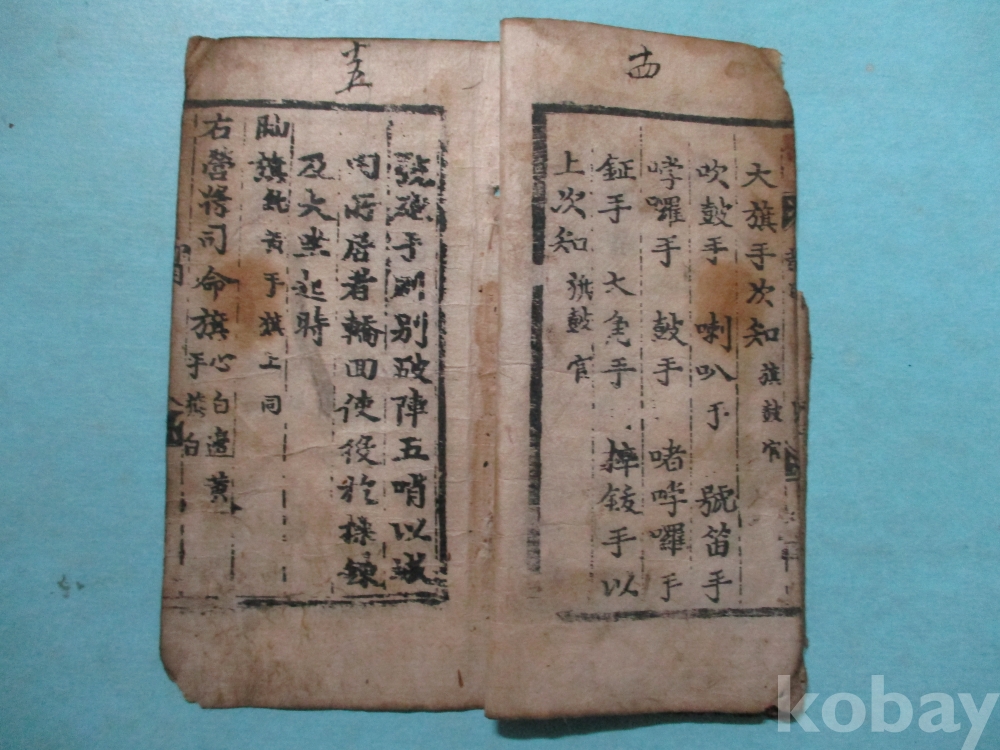 十四
大旗手次知 旗鼓官
吹鼓手 喇叭手 號笛手
哱囉手 鼓手 啫哱囉手
鉦手 大角手 摔鈸手 以
上次知 旗鼓官
十五
號砲手 別破陣五哨以城
內居者輪回使役於操鍊
及大祭祀時
旗 黃手旗上同
右營將司命旗 心白邊黃
手旗白
kobay